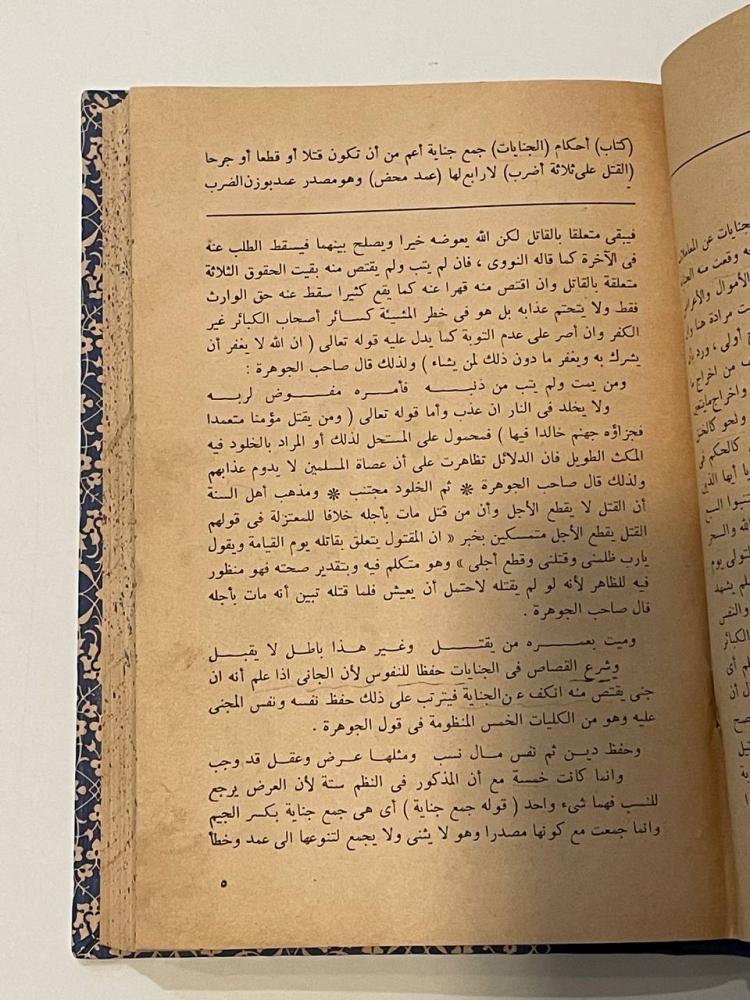 (كتاب) أحكام (الجنايات) جمع جناية أعم من أن تكون قتلا أو قطعا أو جرحا
(القتل على ثلاثة أضرب) لا رابع لها (عمد محض) وهو مصدر عمد بوزن الضرب
فيبقى متعلقا بالقاتل لكن الله يعوضه خيرا ويصلح بينهما فيسقط الطلب عنه
فى الآخرة كما قاله النووى ، فان لم يتب ولم يقتص منه بقيت الحقوق الثلاثة
متعلقة بالقاتل وان اقتص منه قهرا عنه كما يقع كثيرا سقط عنه حق الوارث
فقط ولا يتحتم عذابه بل هو فى خطر المشيئة كسائر أصحاب الكبائر غير
الكفر وان أصر على عدم التوبة كما يدل عليه قوله تعالى ( ان الله لا يغفر أن
يشرك به ويغفر ما دون ذلك لمن يشاء ) ولذلك قال صاحب الجوهرة :
ومن يمت ولم يتب من ذنبه فأمره مفوض لربه
ولا يخلد فى النار ان عذب وأما قوله تعالى ( ومن يقتل مؤمنا متعمدا
فجزاؤه جهنم خالدا فيها ) فمحمول على المستحل لذلك أو المراد بالخلود فيه
المكث الطويل فان الدلائل تظاهرت على أن عصاة المسلمين لا يدوم عذابهم
ولذلك قال صاحب الجوهرة * ثم الخلود مجتنب * ومذهب أهل السنة
أن القتل لا يقطع الأجل وأن من قتل مات بأجله خلافا للمعتزلة فى قولهم
القتل يقطع الأجل متمسكين بخبر « ان المقتول يتعلق بقاتله يوم القيامة ويقول
يارب ظلمنى وقتلنى وقطع أجلى » وهو متكلم فيه وبتقدير صحته فهو منظور
فيه للظاهر لأنه لو لم يقتله لاحتمل أن يعيش فلما قتله تبين أنه مات بأجله
قال صاحب الجوهرة .
وميت بعمره من يقتل وغير هذا باطل لا يقبل
وشرع القصاص فى الجنايات حفظا للنفوس لأن الجانى اذا علم أنه ان
جنى يقتص منه انكف عن الجناية فيترتب على ذلك حفظ نفسه ونفس المجنى
عليه وهو من الكليات الخمس المنظومة فى قول الجوهرة .
وحفظ دين ثم نفس مال نسب ومثلها عرض وعقل قد وجب
وانما كانت خمسة مع أن المذكور فى النظم ستة لأن العرض يرجع
للنسب فهما شىء واحد ( قوله جمع جناية ) أى هى جمع جناية بكسر الجيم
وانما جمعت مع كونها مصدرا وهو لا يثنى ولا يجمع لتنوعها الى عمد وخطأ
٥